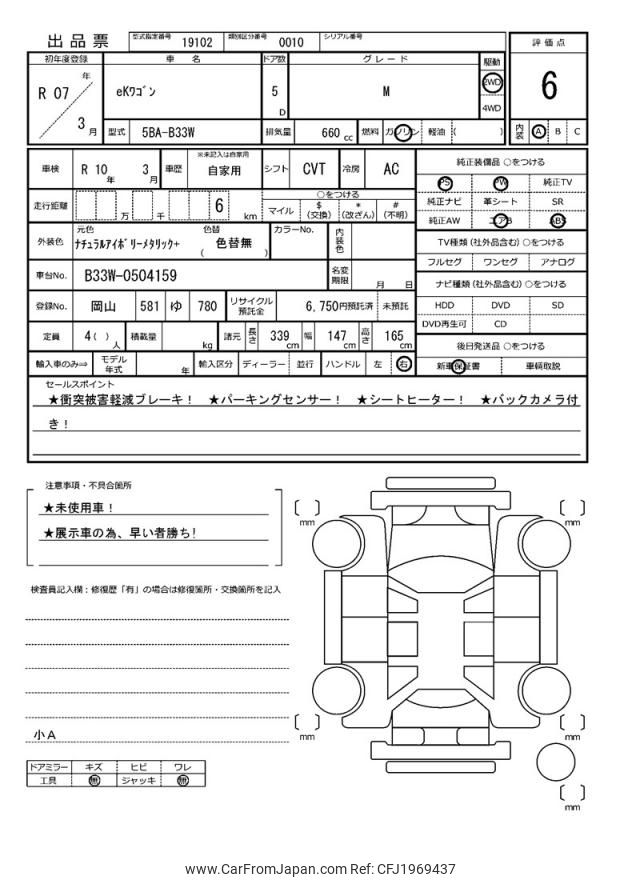 出品票 型式指定番号 19102 類別区分番号 0010 シリアル番号
初年度登録 車 名 ドア数 グレード 駆動 評価点
R 07 年 3 月 eKワゴン 5 D M 2WD 4WD 6
型式 5BA-B33W 排気量 660 cc 燃料 ガソリン 軽油 ( ) 内装 A B C
車検 R 10 年 3 月 車歴 ※未記入は自家用 自家用 シフト CVT 冷房 AC 純正装備品 ○をつける
PS PW 純正TV
走行距離 万 千 6 km ○をつける
マイル $ (交換) * (改ざん) # (不明) 純正ナビ 革シート SR
純正AW エアB ABS
外装色 元色 ナチュラルアイボリーメタリック+ 色替 ( 色替無 ) カラーNo. 内装色 TV種類 (社外品含む) ○をつける
フルセグ ワンセグ アナログ
車台No. B33W-0504159 名変期限 月 日 ナビ種類 (社外品含む) ○をつける
登録No. 岡山 581 ゆ 780 リサイクル預託金 6,750円預託済 未預託 HDD DVD SD
DVD再生可 CD
定員 4 ( ) 人 積載量 kg 諸元 長さ 339 cm 幅 147 cm 高さ 165 cm 後日発送品 ○をつける
輸入車のみ⇒ モデル年式 年 輸入区分 ディーラー 並行 ハンドル 左 右 新車保証書 車輌取説
セールスポイント
★衝突被害軽減ブレーキ! ★パーキングセンサー! ★シートヒーター! ★バックカメラ付
き!
注意事項・不具合箇所
★未使用車!
★展示車の為、早い者勝ち!
mm mm
検査員記入欄:修復歴「有」の場合は修復箇所・交換箇所を記入
小A
mm mm
ドアミラー キズ ヒビ ワレ
工具 無 ジャッキ 無
mm
www.CarFromJapan.com Ref: CFJ1969437